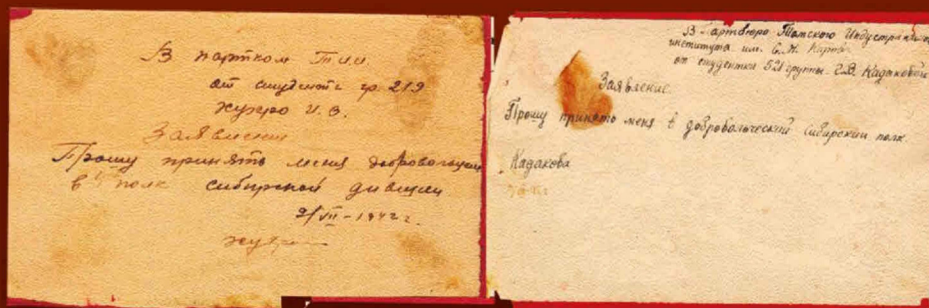 В партком ТИИ
от студента гр. 219
И. З.
Заявление
Прошу принять меня добровольцем
в полк сибирской дивизии
2/VII-1942 г.
В Партбюро Томского Индустриального
института им. С. М. Кирова
от студентки 521 группы. Г. В. Кадаковой
Заявление.
Прошу принять меня в добровольческий сибирский полк.
Кадакова